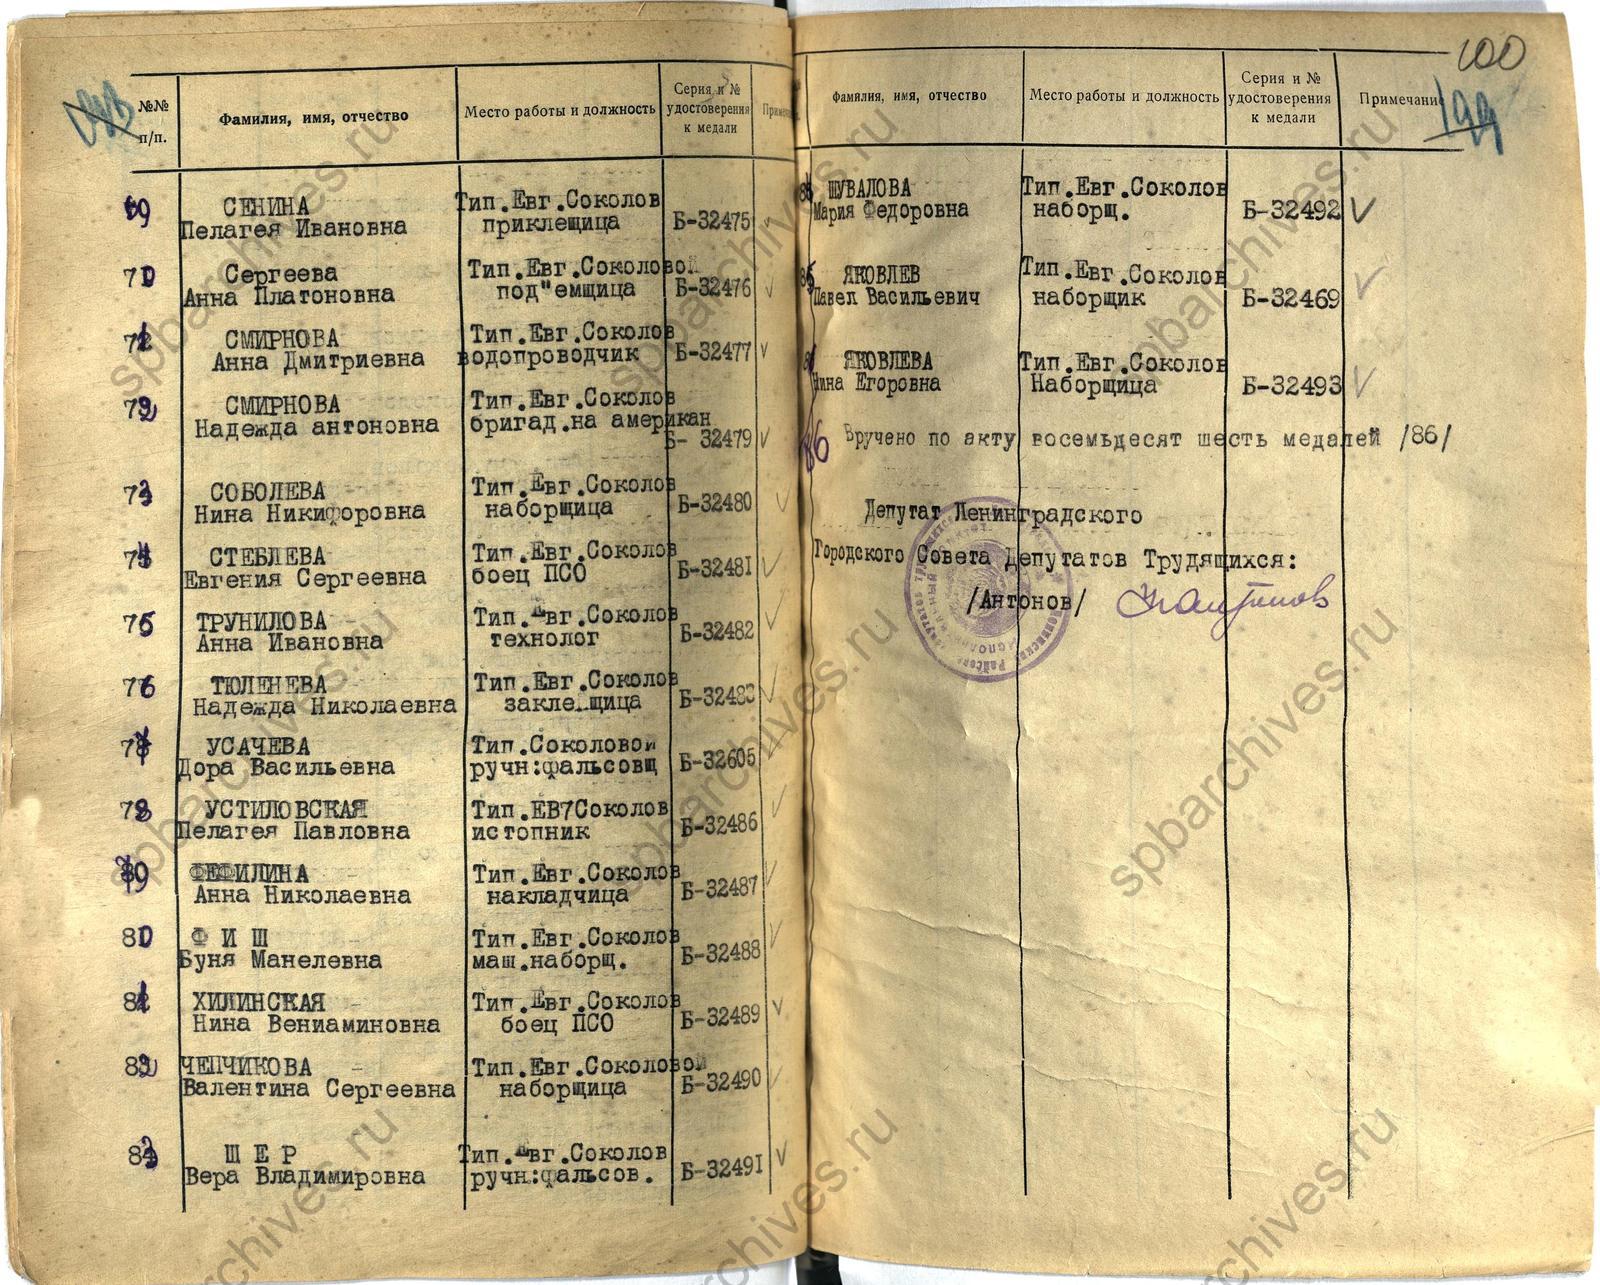 №№ п/п.
Фамилия, имя, отчество
Место работы и должность
Серия и № удостоверения к медали
69 СЕНИНА Тип.Евг.Соколов
Пелагея Ивановна приклещица Б-32475
70 Сергеева Тип.Евг.Соколовой
Анна Платоновна под"емщица Б-32476
71 СМИРНОВА Тип.Евг.Соколов
Анна Дмитриевна водопроводчик Б-32477
72 СМИРНОВА Тип.Евг.Соколов
Надежда антоновна бригад.на американ
Б- 32479
73 СОБОЛЕВА Тип.Евг.Соколов
Нина Никифоровна наборщица Б-32480
74 СТЕБЛЕВА Тип.Евг.Соколов
Евгения Сергеевна боец ПСО Б-32481
75 ТРУНИЛОВА Тип.Евг.Соколов
Анна Ивановна технолог Б-32482
76 ТЮЛЕНЕВА Тип.Евг.Соколов
Надежда Николаевна заклейщица Б-32483
77 УСАЧЕВА Тип.Соколовой
Дора Васильевна ручн:фальсовщ Б-32605
78 УСТИЛОВСКАЯ Тип.ЕВ7Соколов
Пелагея Павловна истопник Б-32486
79 ФЕФИЛИНА Тип.Евг.Соколов
Анна Николаевна накладчица Б-32487
80 Ф И Ш Тип.Евг.Соколов
Буня Манелевна маш.наборщ. Б-32488
81 ХИЛИНСКАЯ Тип.Евг.Соколов
Нина Вениаминовна боец ПСО Б-32489
82 ЧЕПЧИКОВА Тип.Евг.Соколовой
Валентина Сергеевна наборщица Б-32490
83 Ш Е Р Тип.Евг.Соколов
Вера Владимировна ручн:фальсов. Б-32491
100
199
Фамилия, имя, отчество
Место работы и должность
Серия и № удостоверения к медали
Примечание
ШУВАЛОВА Тип.Евг.Соколов
Мария Федоровна наборщ. Б-32492
ЯКОВЛЕВ Тип.Евг.Соколов
Павел Васильевич наборщик Б-32469
ЯКОВЛЕВА Тип.Евг.Соколов
Нина Егоровна Наборщица Б-32493
86 Вручено по акту восемьдесят шесть медалей /86/
Депутат Ленинградского
Городского Совета Депутатов Трудящихся:
/Антонов/
spbarchives.ru